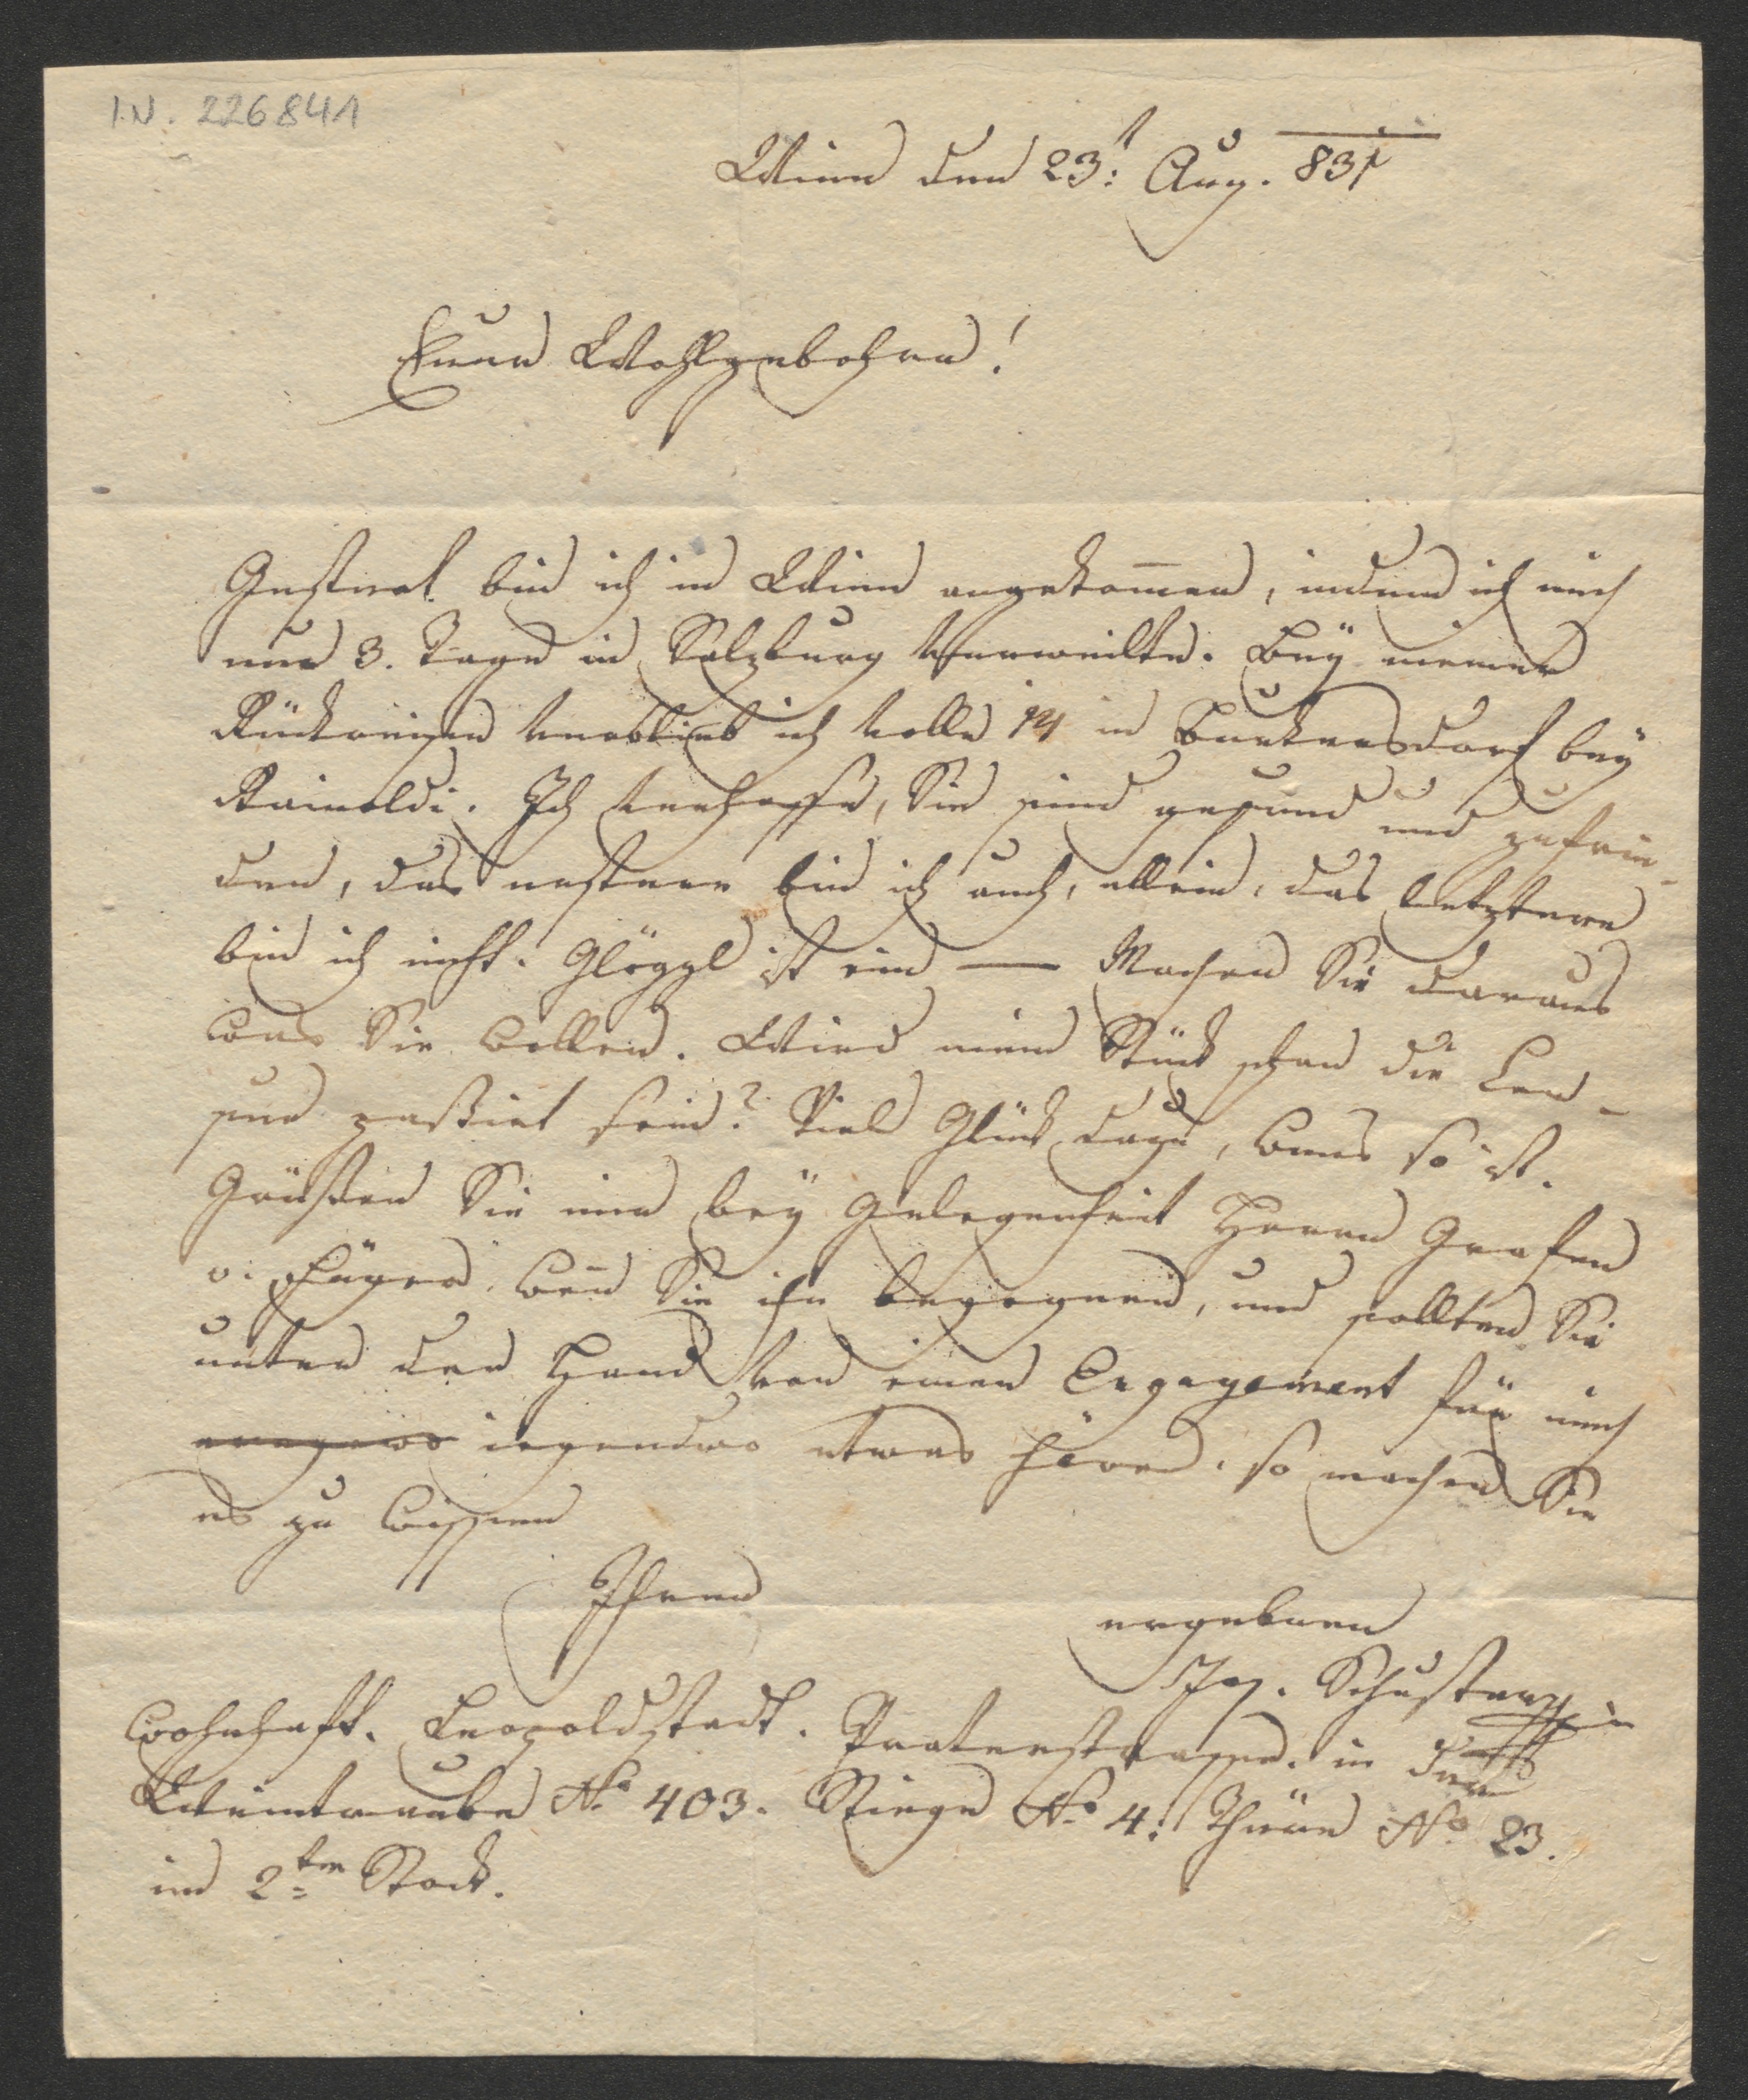 I.N. 226841
Wien den 23t: Aug. 831
Euer Wohlgebohren!
Gestert bin ich in Wien angekom̄en, indem ich mich
nur 3. Tage in Salzburg verweilte. Bey meiner
Rückreise verblieb ich volle 14 in Burkersdorf bey
Rainoldi. Ich verhoffe, Sie sind gesund und zufrie-
den, das erstere bin ich auch, allein, das letztere
bin ich nicht. Glöggl ist ein — Machen Sie daraus
was Sie wollen. Wird mein Stück schon die Cen-
sur passirt sein? Viel Glück dazu, wens so ist.
Grüssen Sie mir bey Gelegenheit Herrn Grafen
v. wen̄ Sie ihn begegnen, und sollten Sie
unter der Hand von einen Engagement für mich
irgendwo etwas hören, so machen Sie
es zu wissen
Ihren
ergebnen
Ig. Schuster
Wohnhaft. Leopoldstadt. Praterstrasse. in der
Weintraube No 403. Stiege No 4: Thüre No 23.
im 2ten Stock.